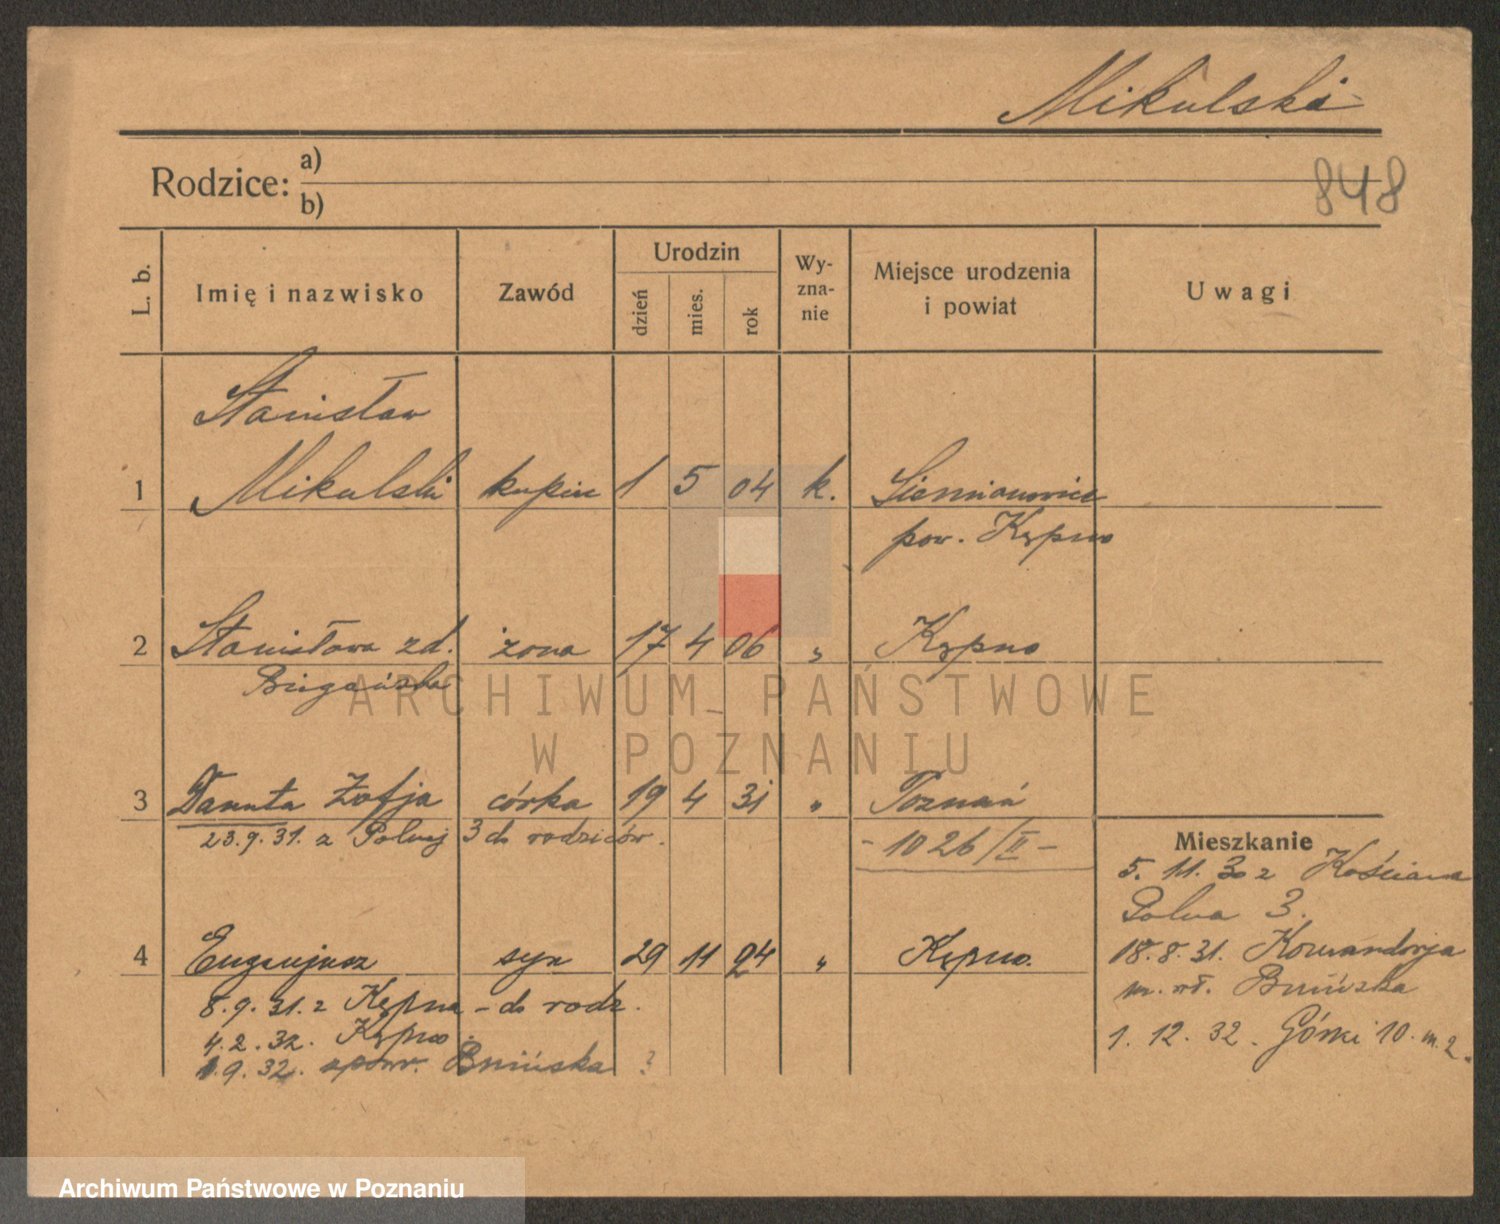 Mikulski
848
Rodzice: a)
b)
L. b.
Imię i nazwisko
Zawód
Urodzin
dzień
mies.
rok
Wy-
zna-
nie
Miejsce urodzenia
i powiat
Uwagi
Stanisław
1 Mikulski kupiec 1 5 04 k. Siemianowice
pow. Kępno
2 Stanisława zd. żona 17 4 06 " Kępno
3 Danuta Zofja córka 19 4 31 " Poznań
23.9.31. z Polnej 3 do rodziców.
- 1026/II -
Mieszkanie
5. 11. 30 z Kościana
Polna 3.
4 Eugenjusz syn 29 11 24 " Kępno.
18.8.31. Komandorja
8.9.31. z Kępna - do rodz.
m. wł. Bnińska
4.2.32. Kępno
1. 12. 32. Górki 10. m. 2.
1.9.32. zpow. Bnińska ?
ARCHIWUM PAŃSTWOWE
W POZNANIU
Archiwum Państwowe w Poznaniu